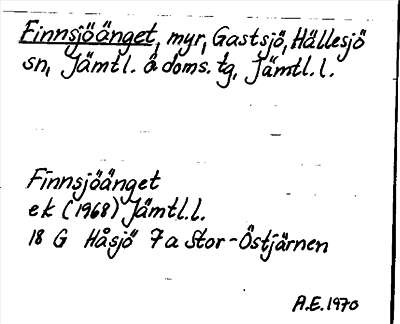 Finnsjöänget, myr, Gastsjö, Hällesjö
sn, Jämtl. å doms. tg, Jämtl. l.
Finnsjöänget
ek (1968) Jämtl.l.
18 G Håsjö 7a Stor-Östjärnen
A.E. 1970